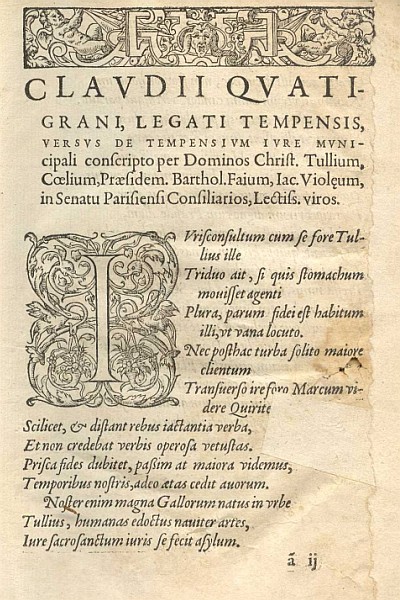 CLAVDII QVATI-
GRANI, LEGATI TEMPENSIS,
VERSVS DE TEMPENSIVM IVRE MVNI-
cipali conſcripto per Dominos Chriſt. Tullium,
Cœlium, Præſidem. Barthol. Faium, Iac. Violęum,
in Senatu Pariſienſi Conſiliarios, Lectiſs. viros.
IVriſconſultum cum ſe fore Tul-
lius ille
Triduo ait, ſi quis ſtomachum
mouiſſet agenti
Plura, parum fidei eſt habitum
illi, vt vana locuto.
Nec poſthac turba ſolito maiore
clientum
Tranſuerſo ire foro Marcum vi-
dere Quirite
Scilicet, & diſtant rebus iactantia verba,
Et non credebat verbis operoſa vetuſtas.
Priſca fides dubitet, paſſim at maiora videmus,
Temporibus noſtris, adeo ætas cedit auorum.
Noſter enim magna Gallorum natus in vrbe
Tullius, humanas edoctus nauiter artes,
Iure ſacroſanctum iuris ſe fecit aſylum.
ã ij